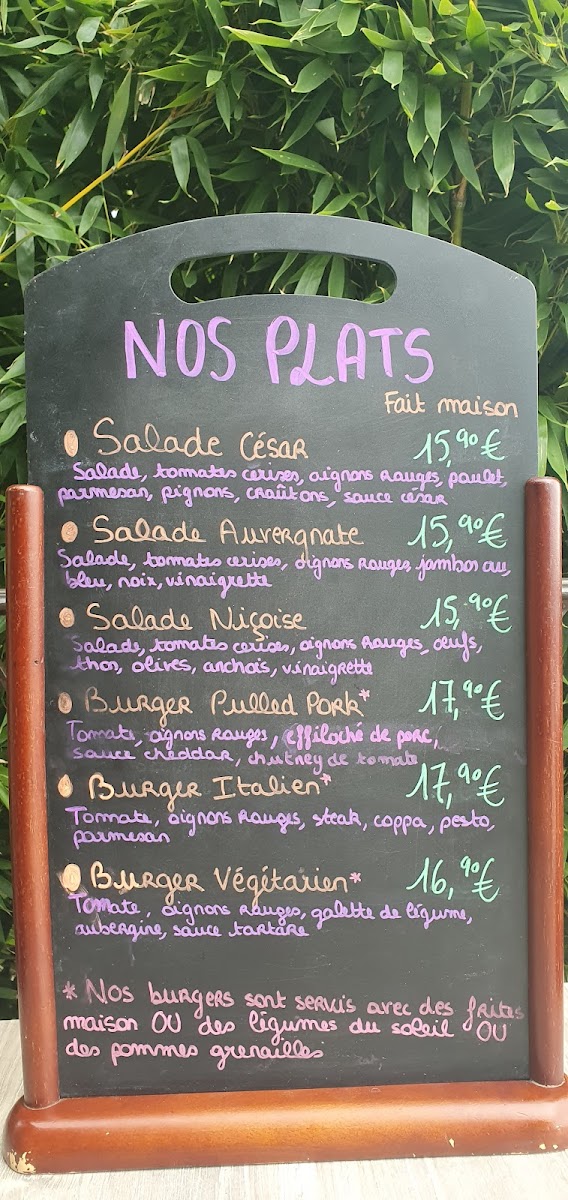 NOS PLATS
Fait maison
Salade César 15,90€
Salade, tomates cerises, oignons rouges, poulet,
parmesan, pignons, croûtons, sauce césar
Salade Auvergnate 15,90€
Salade, tomates cerises, oignons rouges, jambon cru,
bleu, noix, vinaigrette
Salade Niçoise 15,90€
Salade, tomates cerises, oignons rouges, oeufs,
thon, olives, anchois, vinaigrette
Burger Pulled Pork* 17,90€
Tomate, oignons rouges, effiloché de porc,
sauce cheddar, chutney de tomate
Burger Italien* 17,90€
Tomate, oignons rouges, steak, coppa, pesto,
parmesan
Burger Végétarien* 16,90€
Tomate, oignons rouges, galette de légume,
aubergine, sauce tartare
* Nos burgers sont servis avec des frites
maison OU des légumes du soleil OU
des pommes grenailles